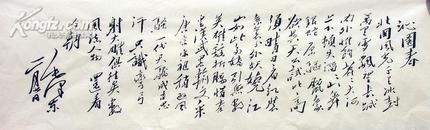 沁园春
北国风光千里冰封
万里雪飘望长城
内外惟余莽莽大河
上下顿失滔滔山舞
银蛇原驰蜡象
欲与天公试比高
须晴日看红装
素裹分外妖娆江
山如此多娇引无数
英雄竞折腰惜秦
皇汉武略输文采
唐宗宋祖稍逊风
骚一代天骄成吉思
汗只识弯弓
射大雕俱往矣数
风流人物还看
今朝
毛泽东